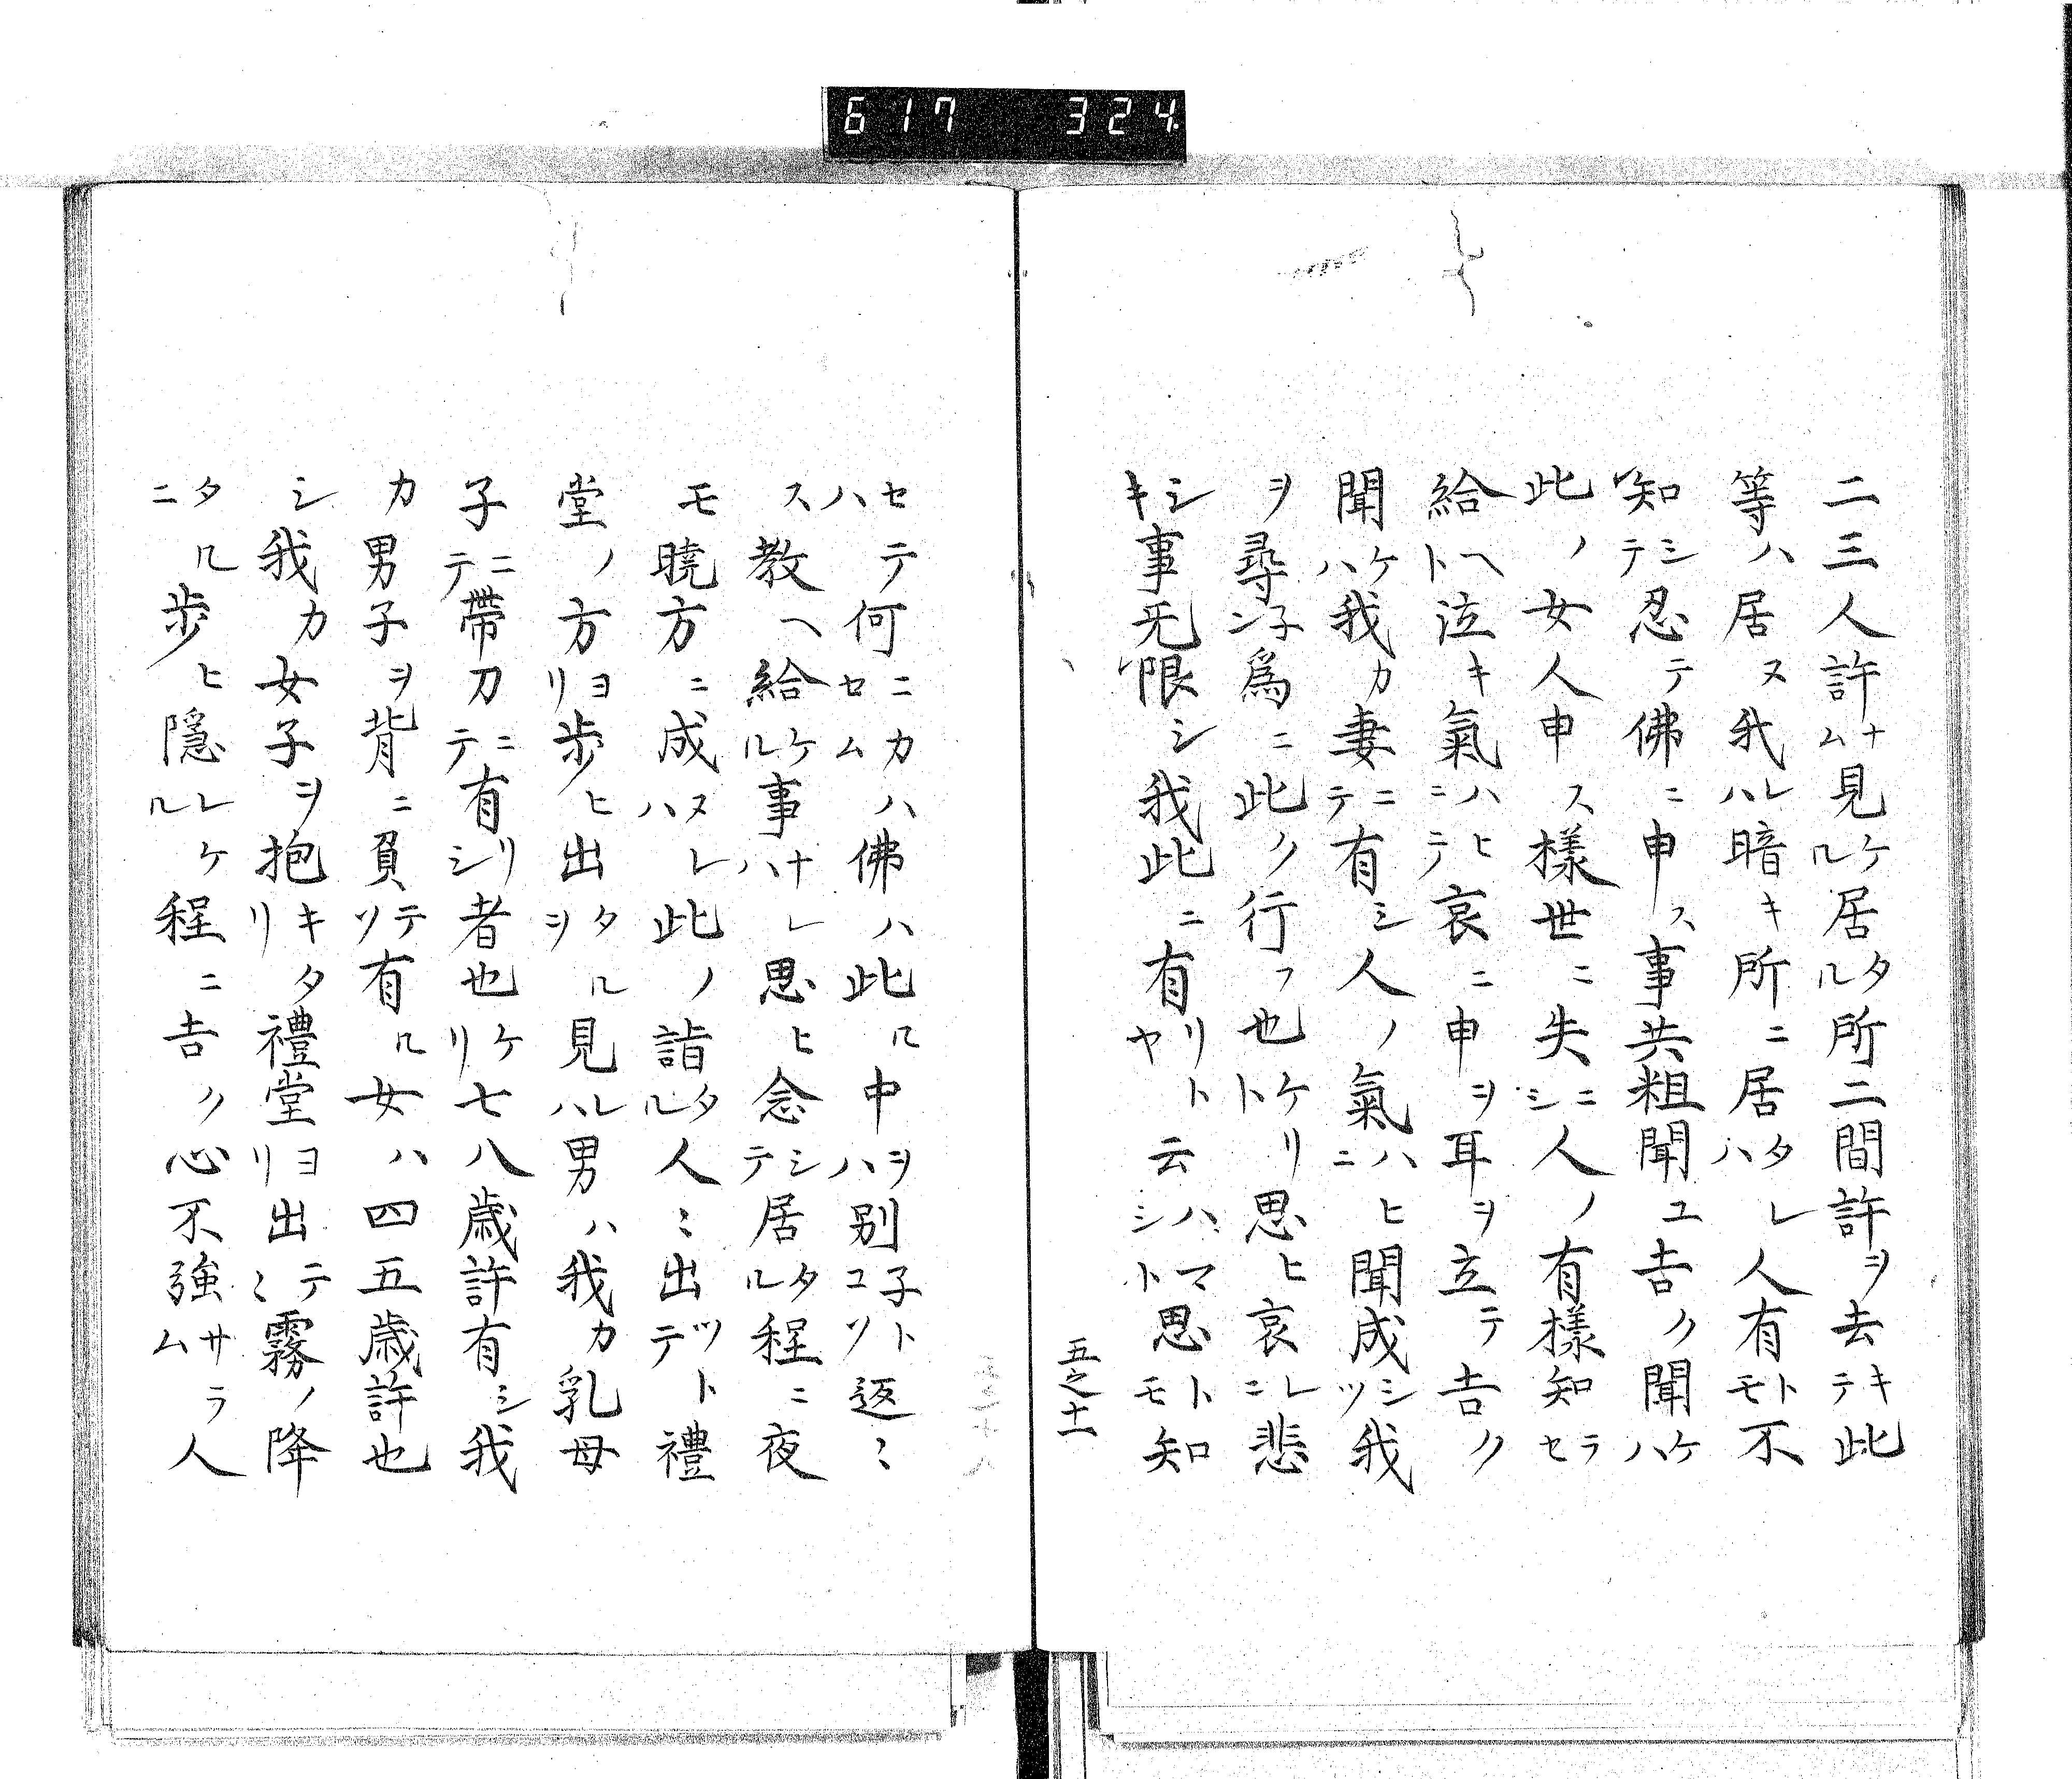 617 324
二三人許ナム見ケル居タル所二間許ヲ去キテ此
等ハ居ヌ我レハ暗キ所ニ居タレハ人有トモ不
知シテ忍テ佛ニ申ス事共粗聞ユ吉ク聞ケハ
此ノ女人申ス様世ニ失ニシ人ノ有様知ラセ
給ヘト泣キ氣ハヒニテ哀ニ申ヲ耳ヲ立テ吉ク
聞ケハ我カ妻ニテ有シ人ノ氣ハヒニ聞成シツ我
ヲ尋子ン爲ニ此ク行フ也ケリト思ヒ哀レニ悲
シキ事无限シ我此ニ有リトヤ云ハマシト思トモ知
五之十一
セテ何ニカハセム佛ハ此ル中ヲハ別子トコソ返〻
ス教ヘ給ケル事ナレハ思ヒ念シテ居タル程ニ夜
モ曉方ニ成ヌレハ此ノ詣タル人〻出ツトテ禮
堂ノ方ヨリ歩ヒ出タルヲ見レハ男ハ我カ乳母
子ニテ帶刀ニテ有リシ者也ケリ七八歳許有シ我
カ男子ヲ背ニ負テソ有ル女ハ四五歳許也
シ我カ女子ヲ抱キタリ禮堂ヨリ出テ〻霧ノ降
タルニ歩ヒ隠レケル程ニ吉ク心不強サラム人